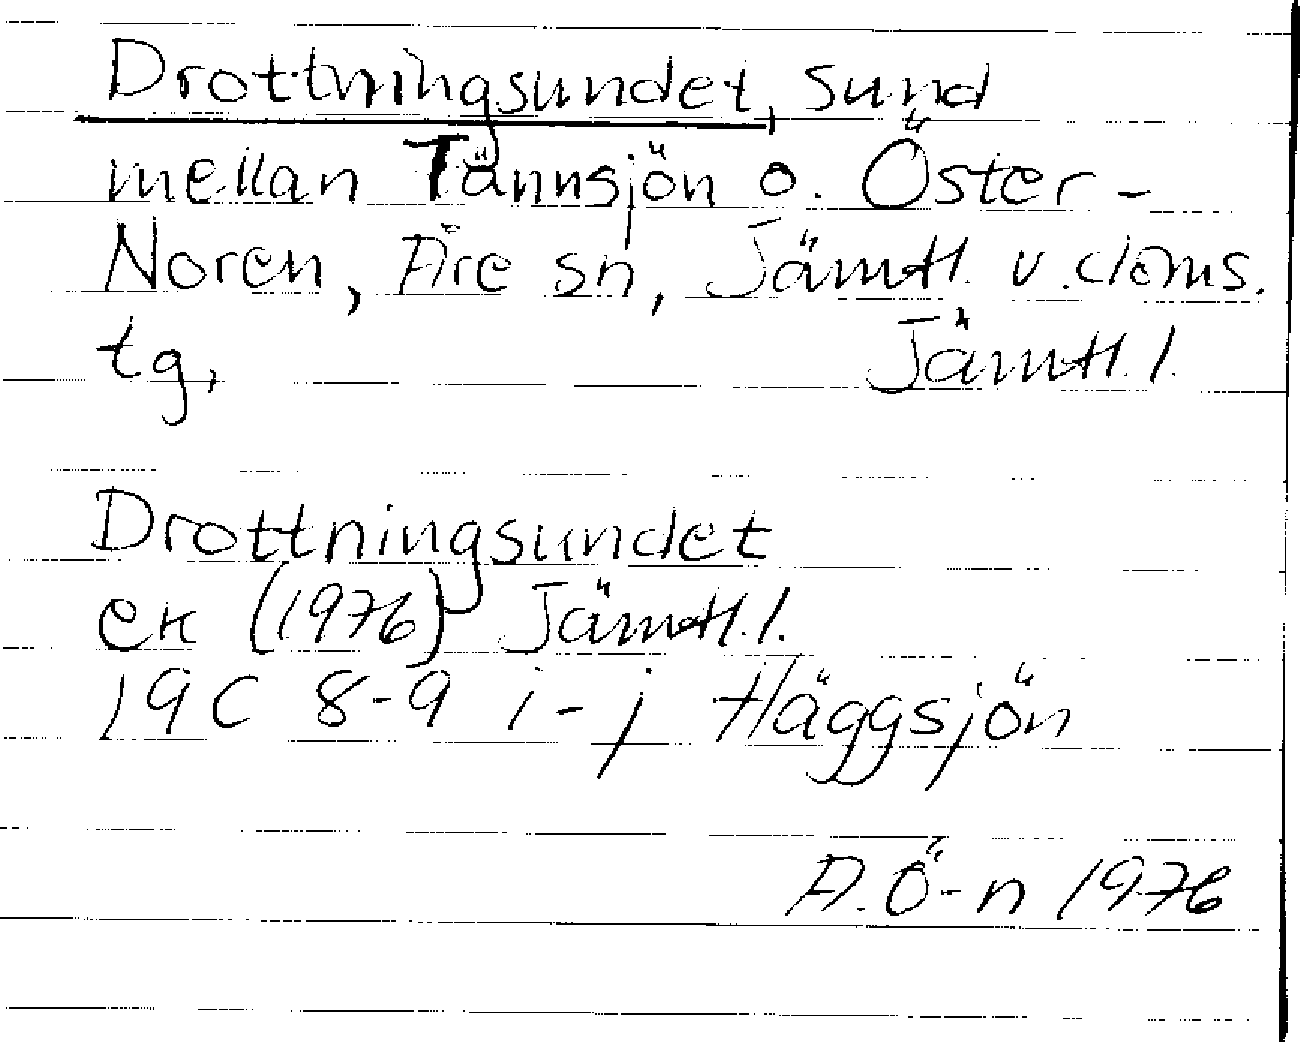 Drottningsundet, sund
mellan Tännsjön o. Öster-
Noren, Åre sn, Jämtl. v. doms.
tg, Jämtl. l.
Drottningsundet
ek (1976) Jämtl. l.
19C 8-9 i-j Häggsjön
A. Ö-n 1976